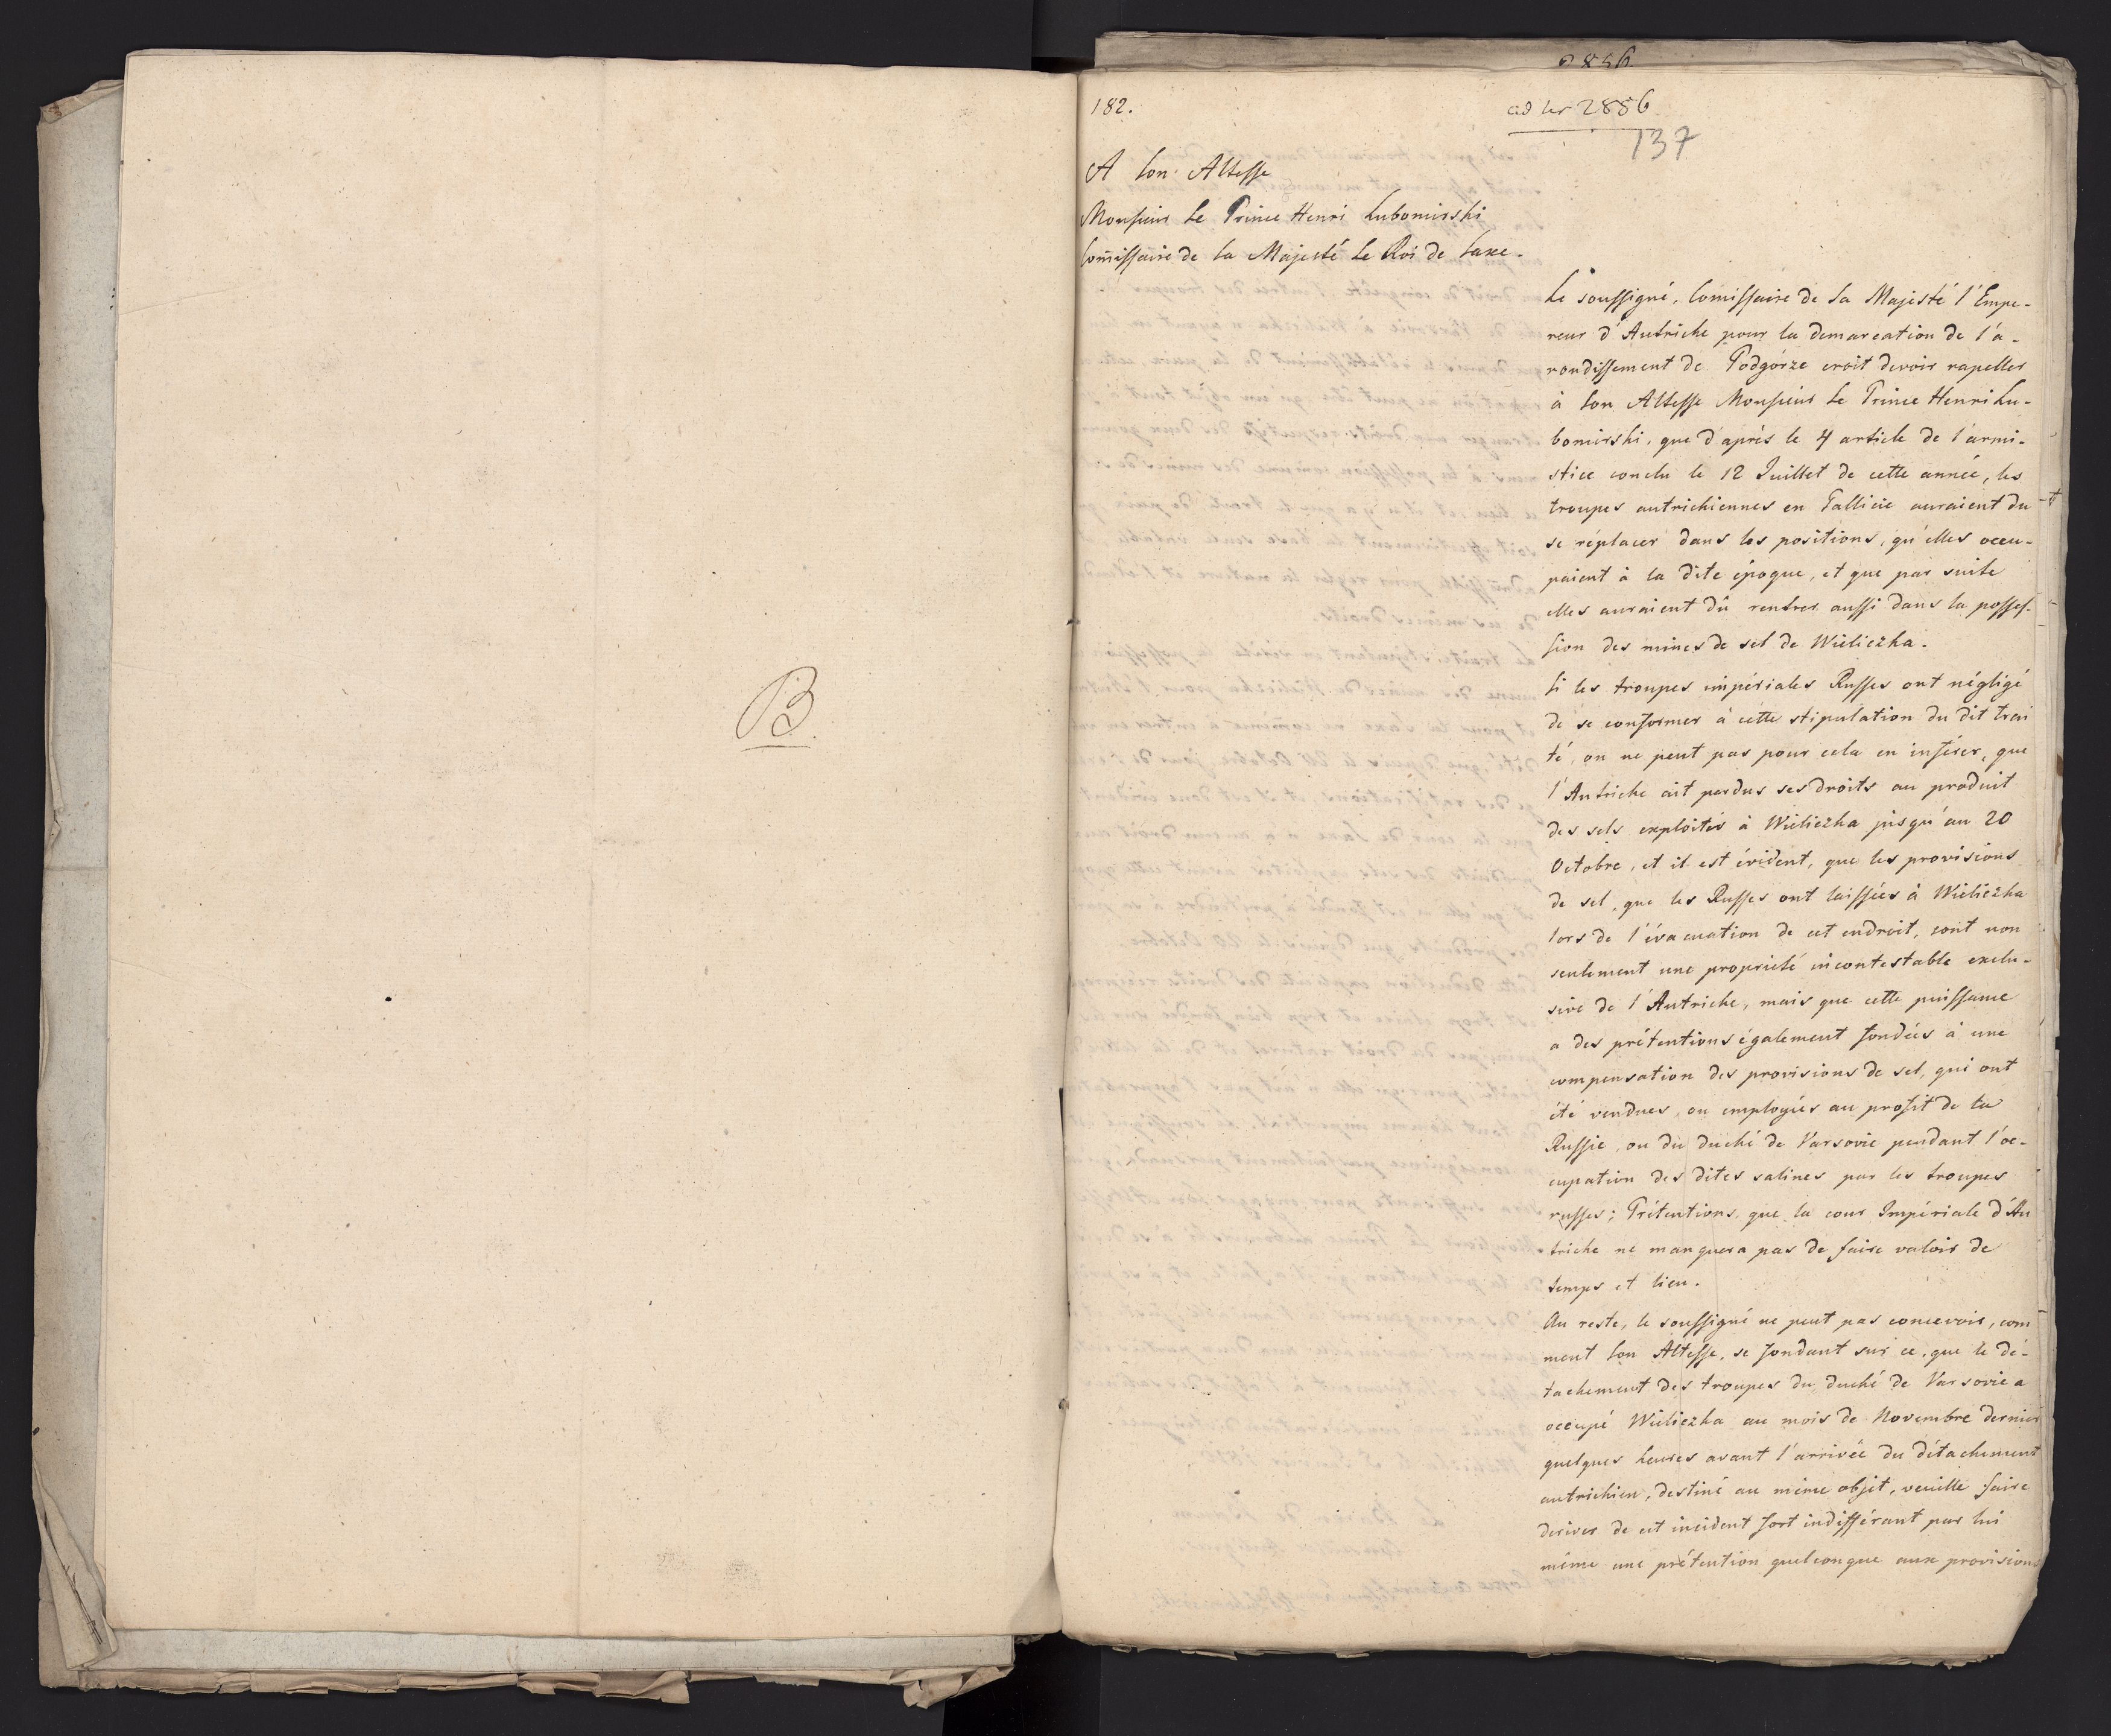 B.
2886
182.
ad Nr 2886
137
A Son Altesse
Monsieur Le Prince Henri Lubomirski
Com̄issaire de Sa Majesté Le Roi de Saxe.
Le soussigné, Com̄issaire de Sa Majesté l'Empe-
reur d'Autriche pour la demarcation de l'a-
rondissement de Podgórze croit devoir rapeller
à Son Altesse Monsieur Le Prince Henri Lu-
bomirski, que d'après le 4 article de l'armi-
stice conclu le 12 Juillet de cette année, les
troupes autrichiennes en Gallicie auraient du
se réplacer dans les positions, qu'elles occu-
paient à la dite époque, et que par suite
elles auraient dû rentrer aussi dans la posses-
sion des mines de sel de Wieliczka.
Si les troupes impériales Russes ont négligé
de se conformer à cette stipulation du dit trai
té, on ne peut pas pour cela en inférer, que
l'Autriche ait perdus ses droits au produit
des sels exploités à Wieliczka jusqu'au 20
Octobre, et il est évident, que les provisions
de sel, que les Russes ont laissées à Wieliczka
lors de l'évacuation de cet endroit, sont non
seulement une propriété incontestable exclu-
sive de l'Autriche, mais que cette puissance
a des prétentions également fondées à une
compensation des provisions de sel, qui ont
été vendues, ou employées au profit de la
Russie, ou du duché de Varsovie pendant l'oc-
cupation des dites salines par les troupes
russes; Prétentions, que la cour Impériale d'Au
triche ne manquera pas de faire valoir de
temps et lieu.
Au reste, le soussigné ne peut pas concevoir, com
ment Son Altesse, se fondant sur ce, que le dé-
tachement des troupes du duché de Varsovie a
occupé Wieliczka au mois de Novembre dernier
quelques heures avant l'arrivée du détachement
autrichien, destiné au même objet, veuille faire
deriver de cet incident fort indifférant par lui
même une prétention quelconque aux provisions